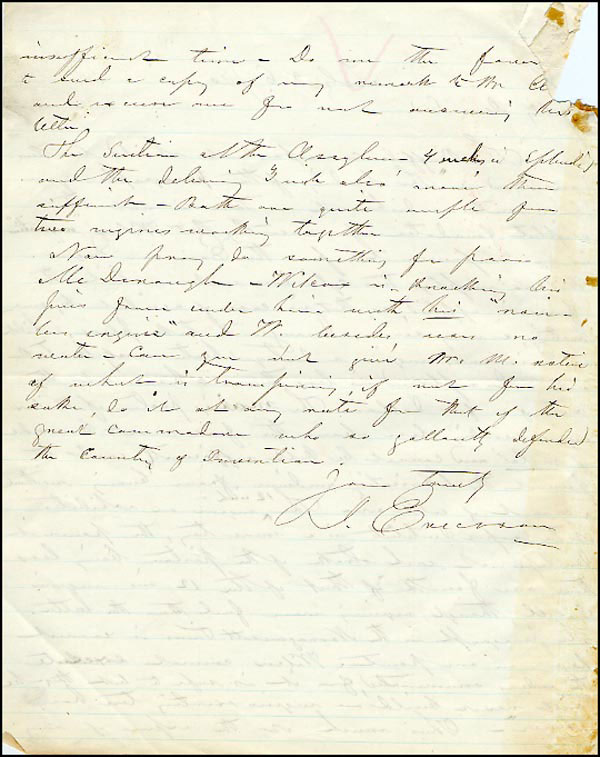 insufficient time - Do me the favor
to send a copy of my remark to Mr
and excuse me for not answering this
letter.
The Suction at the Asylum - 4 inches is splendid
and the delivery 3 inch also more than
sufficient - Both are quite ample for
two engines working together
Now pray do something for poor
McDonough - Wilcox is knocking his
from under him with his "
less engine" and W. besides no
- Can you not give Mr. M. notice
of what is transpiring, if not for his
sake, do it at any rate for that of the
great commodore who so gallantly defended
the Country of Invention.
Yours truly
J. Ericsson